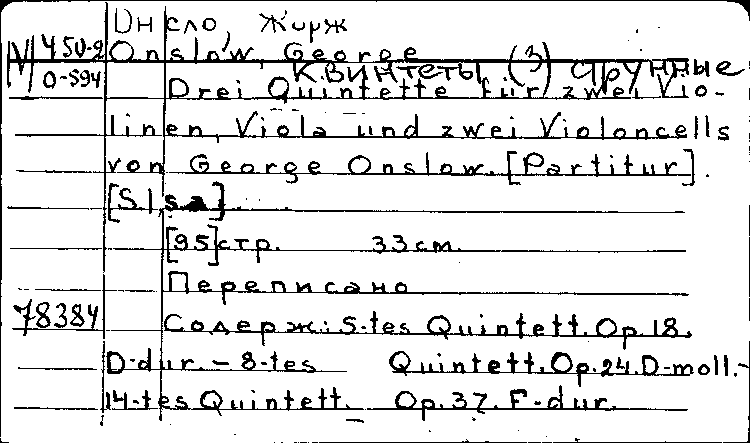 Онсло, Жорж
М 450-2 Onslow, George
O-594 Квинтеты (3) струнные
Drei Quintette für zwei Vio-
linen, Viola und zwei Violoncells
von George Onslow. [Partitur].
[S.l, s.a]
[95]стр. 33 см.
Переписано
78384 Содерж: 5-tes Quintett. Op. 18.
D-dur. - 8-tes Quintett. Op. 24. D-moll. -
14-tes Quintett. Op. 37. F-dur.